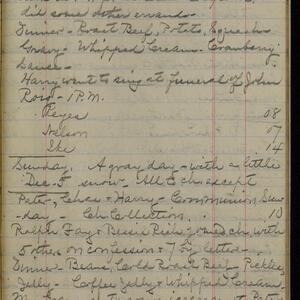 did some other errand -
Dinner - Roast Beef, Potato, Squash
Gravy - Whipped Cream - Cranberry
Sauce -
Harry went to sing at funeral of John
Roig - 1 P.M.
Reyes 08
Nelson 07
Ike 14
Sunday, A gray day - with a little
Dec. 5 snow. All E ch except
Pater, Chas & Harry - Communion Sun-
day - Ch Collection 10
Ralph Fay & Bessie Rich joined ch. with
5 others on confession & 7 by letter -
Dinner Beans, Cold Roast Beef - Pickles
Jelly - Coffee Jelly & Whipped Cream.